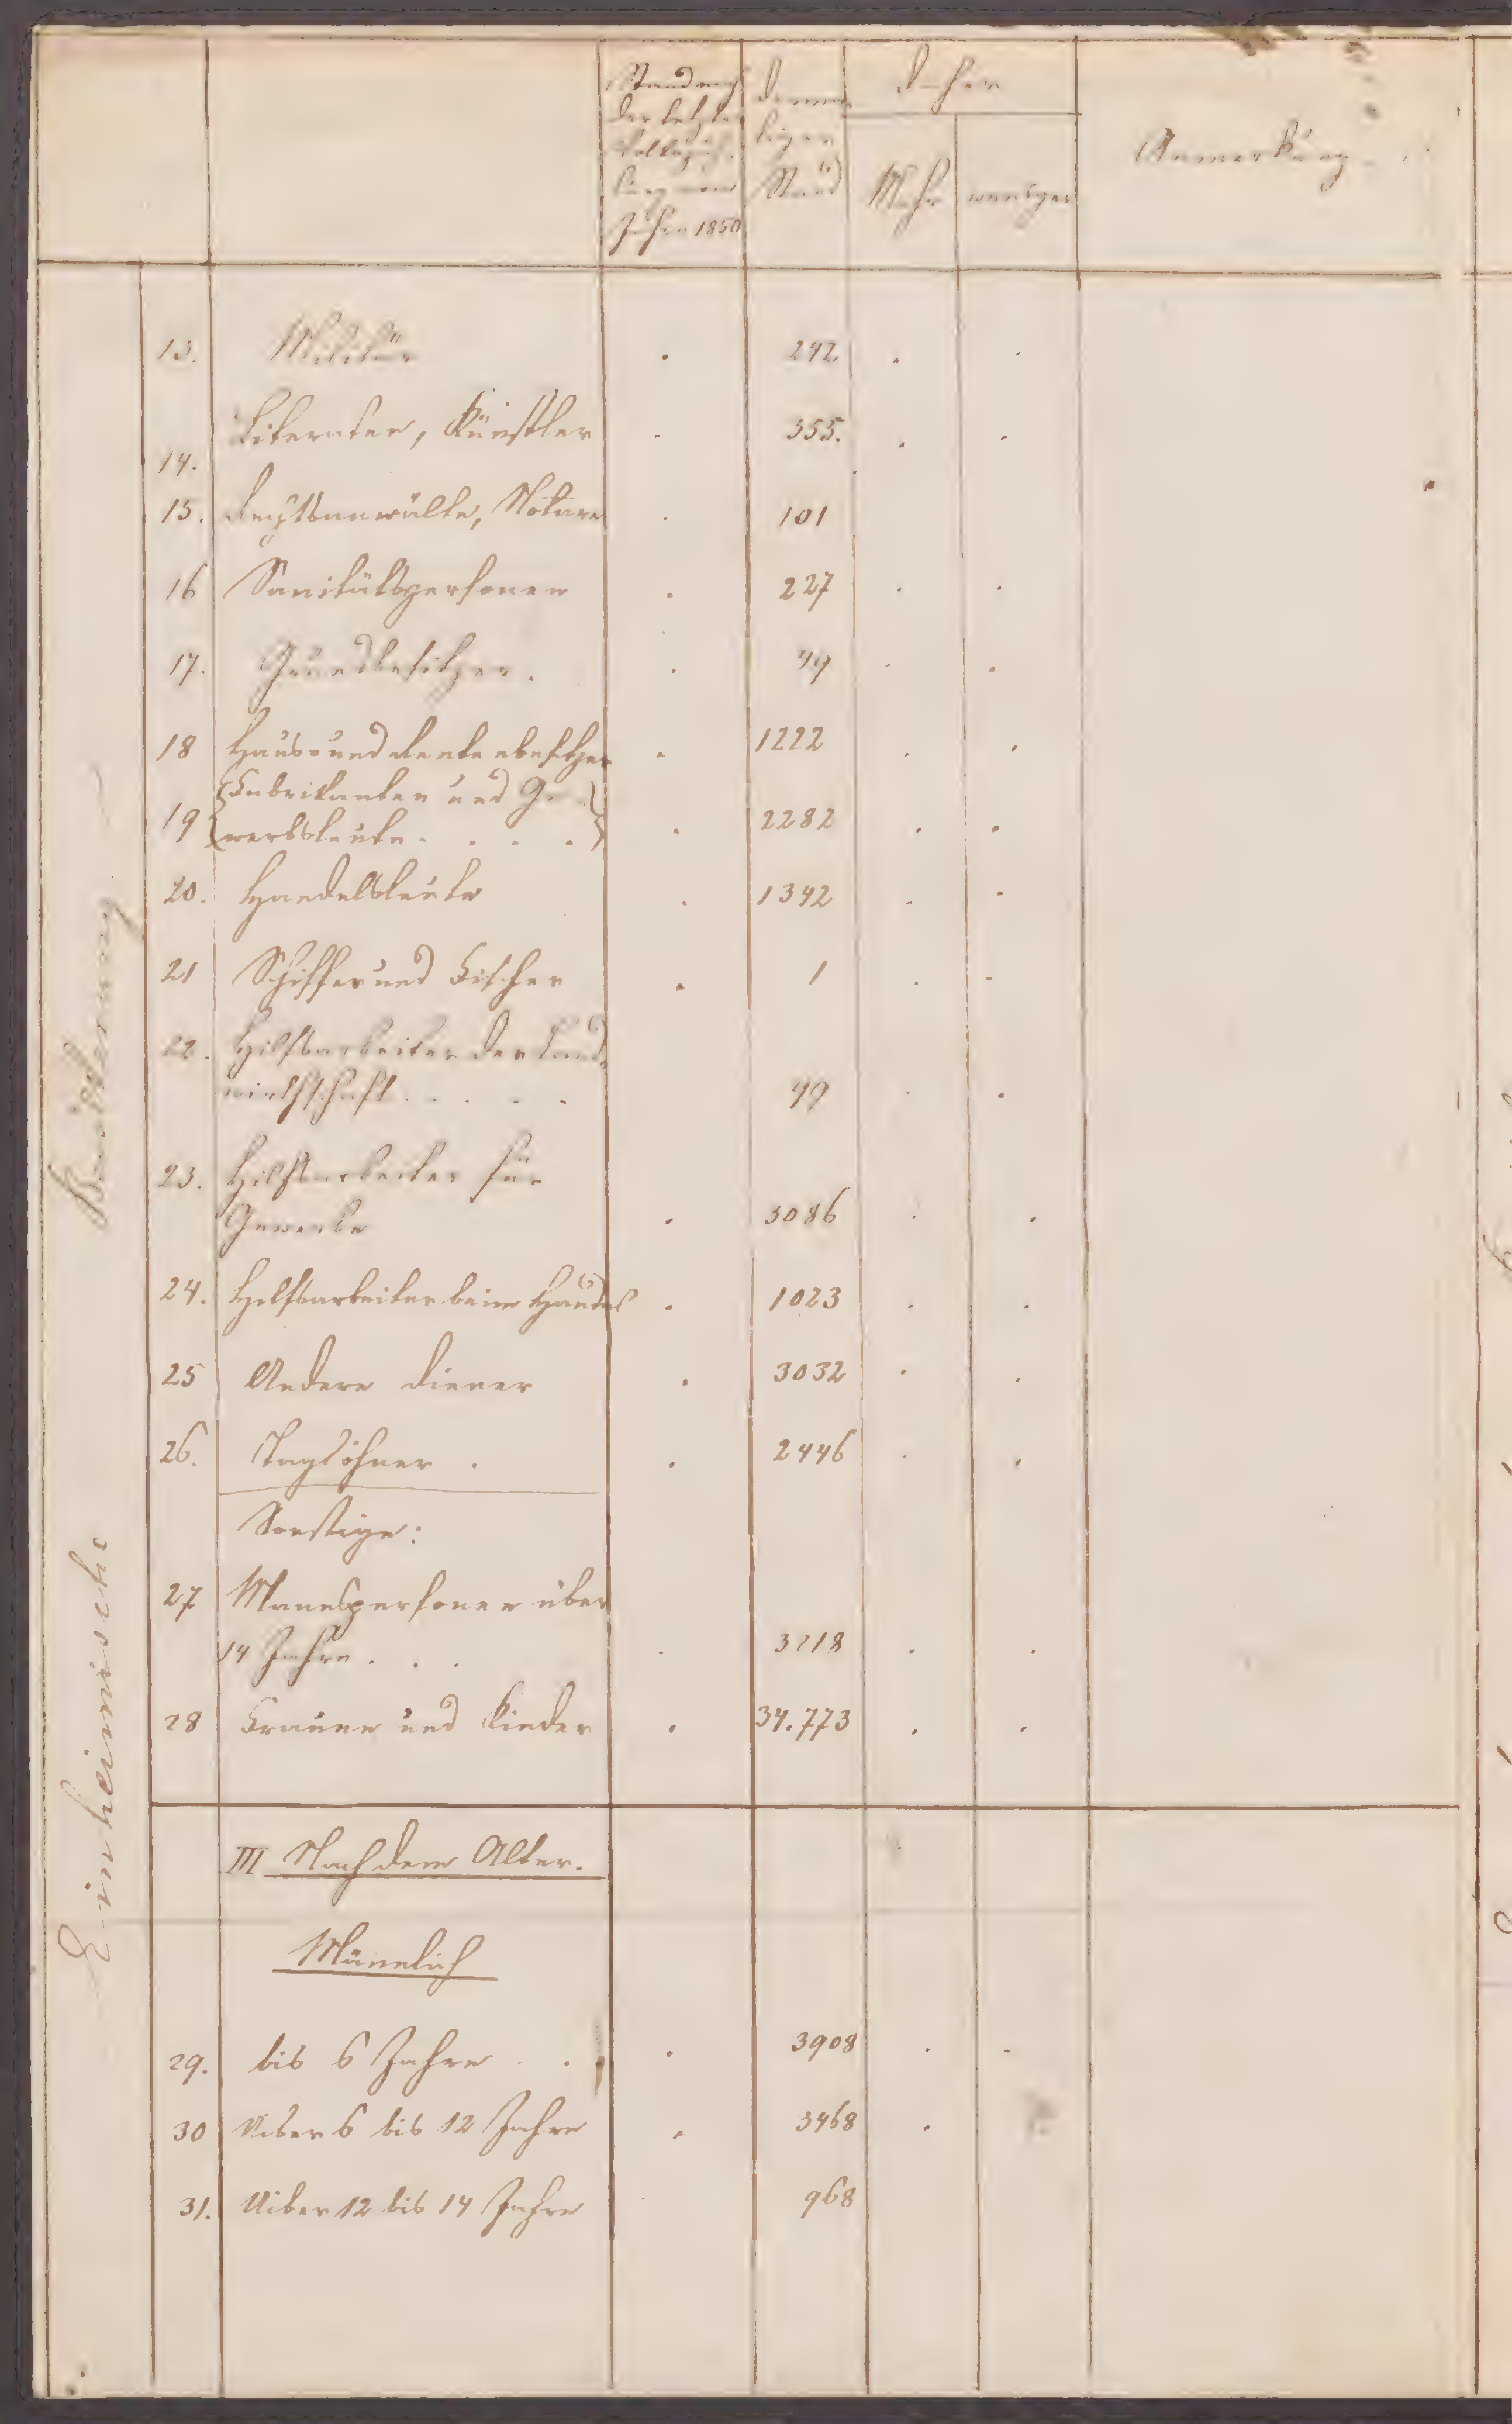 Stand nach
der letzten
Volkszäh-
lung vom
Jahre 1850
Derma-
liger
Stand
Daher
Mehr
weniger
Anmerkung
Einheimische Bevölkerung
13. Militär . 242 . .
14. Literaten, Künstler . 355. . .
15. Rechtsanwälte, Notare . 101
16 Sanitätspersonen . 227 . .
17. Grundbesitzer . . 49 . .
18 Haus- und Rentenbesitzer . 1222 . .
Fabrikanten und Ge-
19 werbsleute . . . . . 2282 . .
20. Handelsleute . 1342 . .
21 Schiffer und Fischer . 1 . .
22. Hilfsarbeiter der Land-
wirthschaft . . . . 49 . .
23. Hilfsarbeiter für
Gewerbe . 3086 . .
24. Hilfsarbeiter beim Handel . 1023 . .
25 Andere Diener . 3032 . .
26. Taglöhner . . 2446 . .
Sonstige:
27 Mannspersonen über
14 Jahre . . . . 3218 . .
28 Frauen und Kinder . 34.773 . .
III Nach dem Alter.
Männlich
29. bis 6 Jahre . . . 3908 . .
30 Uiber 6 bis 12 Jahre . 3468 .
31. Uiber 12 bis 14 Jahre 968